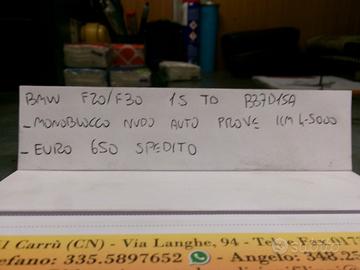 BMW F20/F30 1.5 TD B37D15A
- MONOBLOCCO NUDO AUTO PROVE KM 4-5000
- EURO 650 SPEDITO
Carrù (CN) - Via Langhe, 94 - Tel. e Fax 017
efono: 335.5897652 - Angelo: 348.25
subito